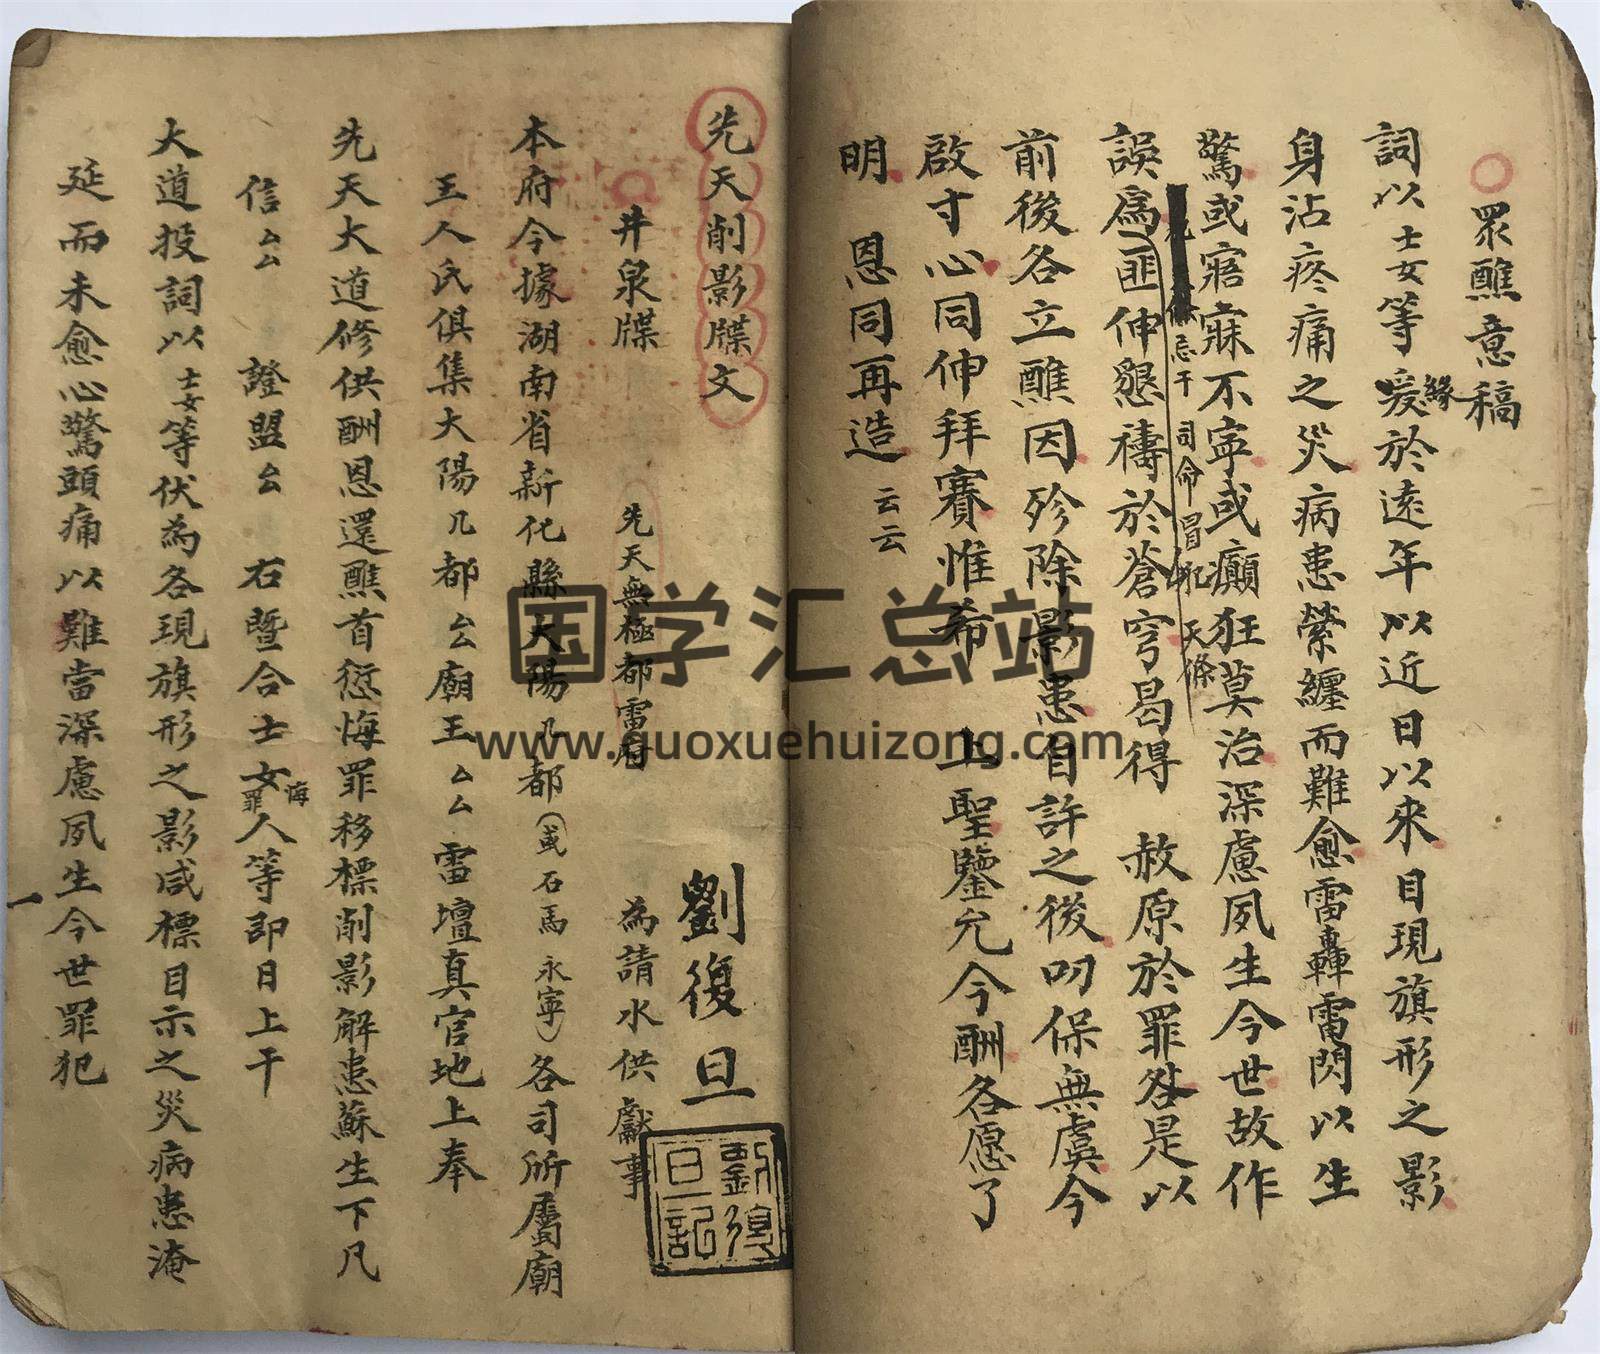 眾醮意稿
詞以士女等爰緣於遠年以近日以來目現旗形之影
身沾疼痛之災病患縈纏而難愈雷轟電閃以生
驚或寤寐不寧或癲狂莫治深慮夙生今世故作
忌干司命冒犯天條
誤為匪伸懇禱於蒼穹曷得 赦原於罪咎是以
前後各立醮因殄除影患自許之後叨保無虞今
啟寸心同伸拜賽惟希 上聖鑒允今酬各愿了
明 恩同再造 云云
先天削影牒文 劉復旦
井泉牒 先天無極都雷府 為請水供獻事
本府今據湖南省新化縣大陽几都(或石馬永寧)各司所屬廟
王人氏俱集大陽几都厶廟王厶厶雷壇真官地上奉
先天大道修供酬恩還醮首愆悔罪移標削影解患蘇生下凡
信厶 證盟厶 右暨合士女悔罪人等即日上干
大道投詞以士女等伏為各現旗形之影咸標目示之災病患淹
延而未愈心驚頭痛以難當深慮夙生今世罪犯
一
劉復旦記
国学汇总站
www.guoxuehuizong.com